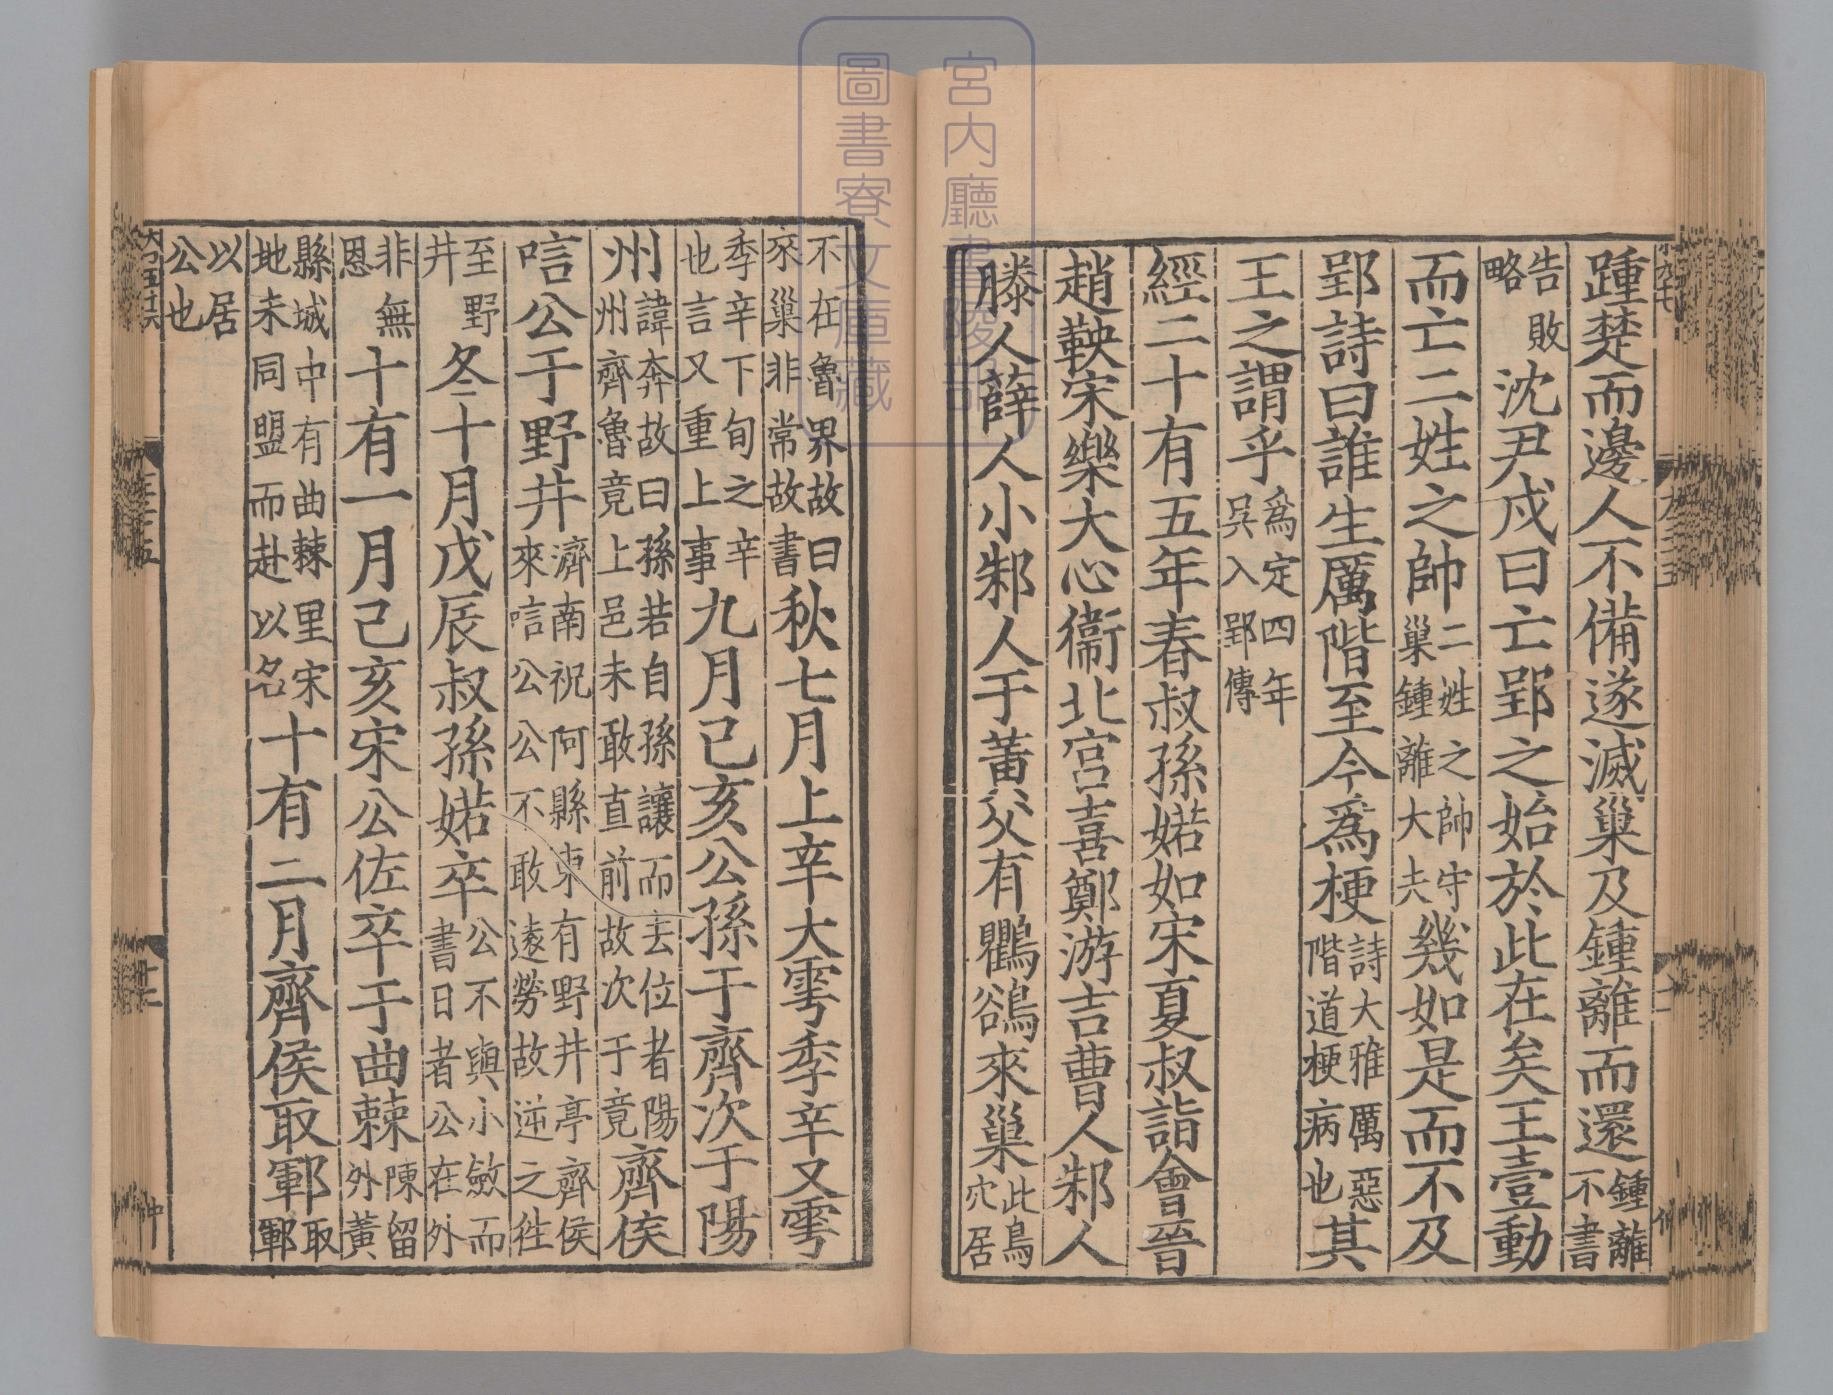 踵楚而邊人不備遂滅巢及鍾離而還鍾離不書
告敗略沈尹戍曰亡郢之始於此在矣王壹動
而亡二姓之帥二姓之帥守巢鍾離大夫幾如是而不及
郢詩曰誰生厲階至今爲梗詩大雅厲惡階道梗病也其
王之謂乎爲定四年吳入郢傳
經二十有五年春叔孫婼如宋夏叔詣會晉
趙鞅宋樂大心衞北宮喜鄭游吉曹人邾人
滕人薛人小邾人于黃父有鸜鵒來巢此鳥穴居
不在魯界故曰來巢非常故書秋七月上辛大雩季辛又雩
季辛下旬之辛也言又重上事九月己亥公孫于齊次于陽
州諱奔故曰孫若自孫讓而去位者陽州齊魯竟上邑未敢直前故次于竟齊侯
唁公于野井濟南祝阿縣東有野井亭齊侯來唁公公不敢遠勞故逆之往
至野井冬十月戊辰叔孫婼卒公不與小斂而書日者公在外
非無恩十有一月己亥宋公佐卒于曲棘陳留外黃
縣城中有曲棘里宋地未同盟而赴以名十有二月齊侯取鄆取鄆
以居公也
宮內廳書陵部
圖書寮文庫藏